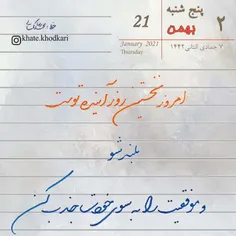 پنج شنبه
۲ بهمن
۷ جمادی الثانی ۱۴۴۲
21
January 2021
Thursday
khate.khodkari
امروز نخستین روز آینده توست
بلند شو
و موفقیت را به سوی خودت جذب کن